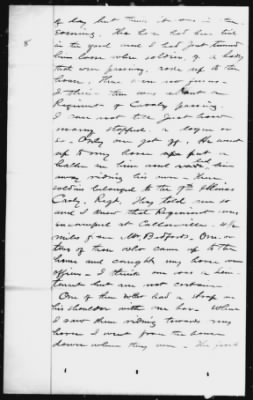 8
of day but think it was in the
evening. The horse had been tied
in the yard and I had just turned
him loose when soldiers, of a body
that were passing, rode up to the
house. There were no fences.
I think there was about a
Regiment of Cavalry passing.
I can not tell just how
many stopped, a dozen or
so. Only one got off. He went
up to my horse put
halter on him and led him
away riding his own. These
soldiers belonged to the 7th Illinois
Cavly. Regt. They told me so
and I know that Regiment was
encamped at Collierville. Six
miles from Mr. Bedfords. One or
two of them who came up to the
house and caught my horse were
officers. I think one was a lieu-
tenant but am not certain.
One of them who had a strap on
his shoulder with one bar. When
I saw them riding towards my
horse I went from the house
down where they were. He just